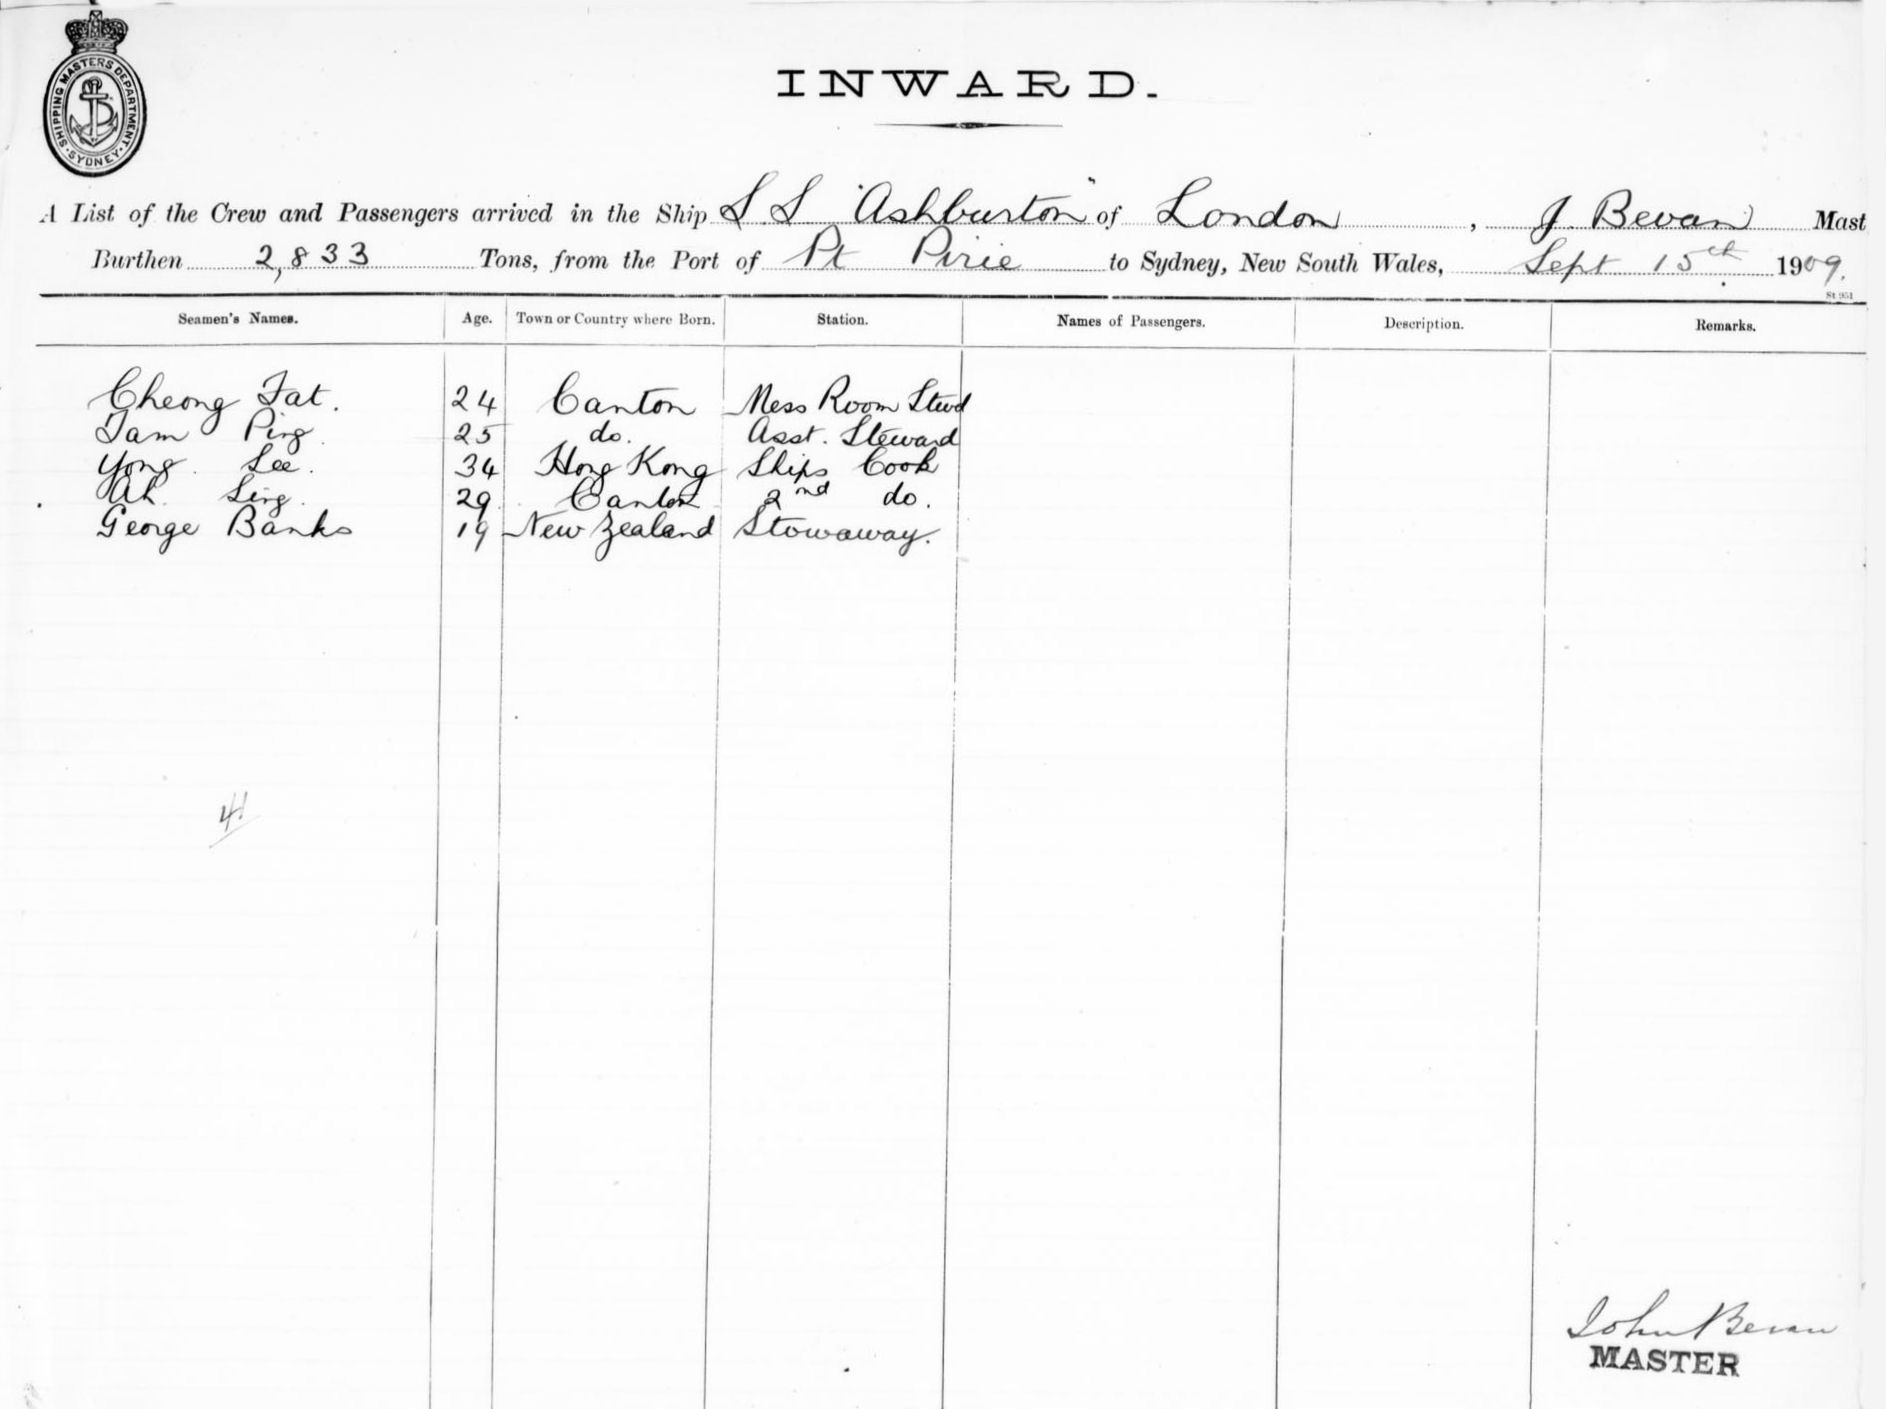 SHIPPING MASTERS DEPARTMENT. SYDNEY.
INWARD.
A List of the Crew and Passengers arrived in the Ship S S "Ashburton" of London, J. Bevan Mast
Burthen 2,833 Tons, from the Port of Pt Pirie to Sydney, New South Wales, Sept 15th 1909.
St 951
Seamen's Names. Age. Town or Country where Born. Station. Names of Passengers. Description. Remarks.
Cheong Fat. 24 Canton Mess Room Stewd
Tam Ping. 25 do. Asst. Steward
Yong Lee. 34 Hong Kong Ships Cook
Ah Sing. 29 Canton 2nd do.
George Banks 19 New Zealand Stowaway.
41
John Bevan
MASTER